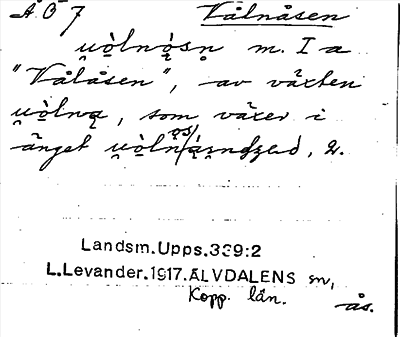 Å Ö 7 Vålnåsen
u̯ò̱lnǫ̀sn̥ m. I a
"Vålåsen", av växten
u̯ò̱lną, som växer i
änget
Landsm.Upps.339:2
L.Levander.1917.ÄLVDALENS sn,
Kopp. län.
ås.